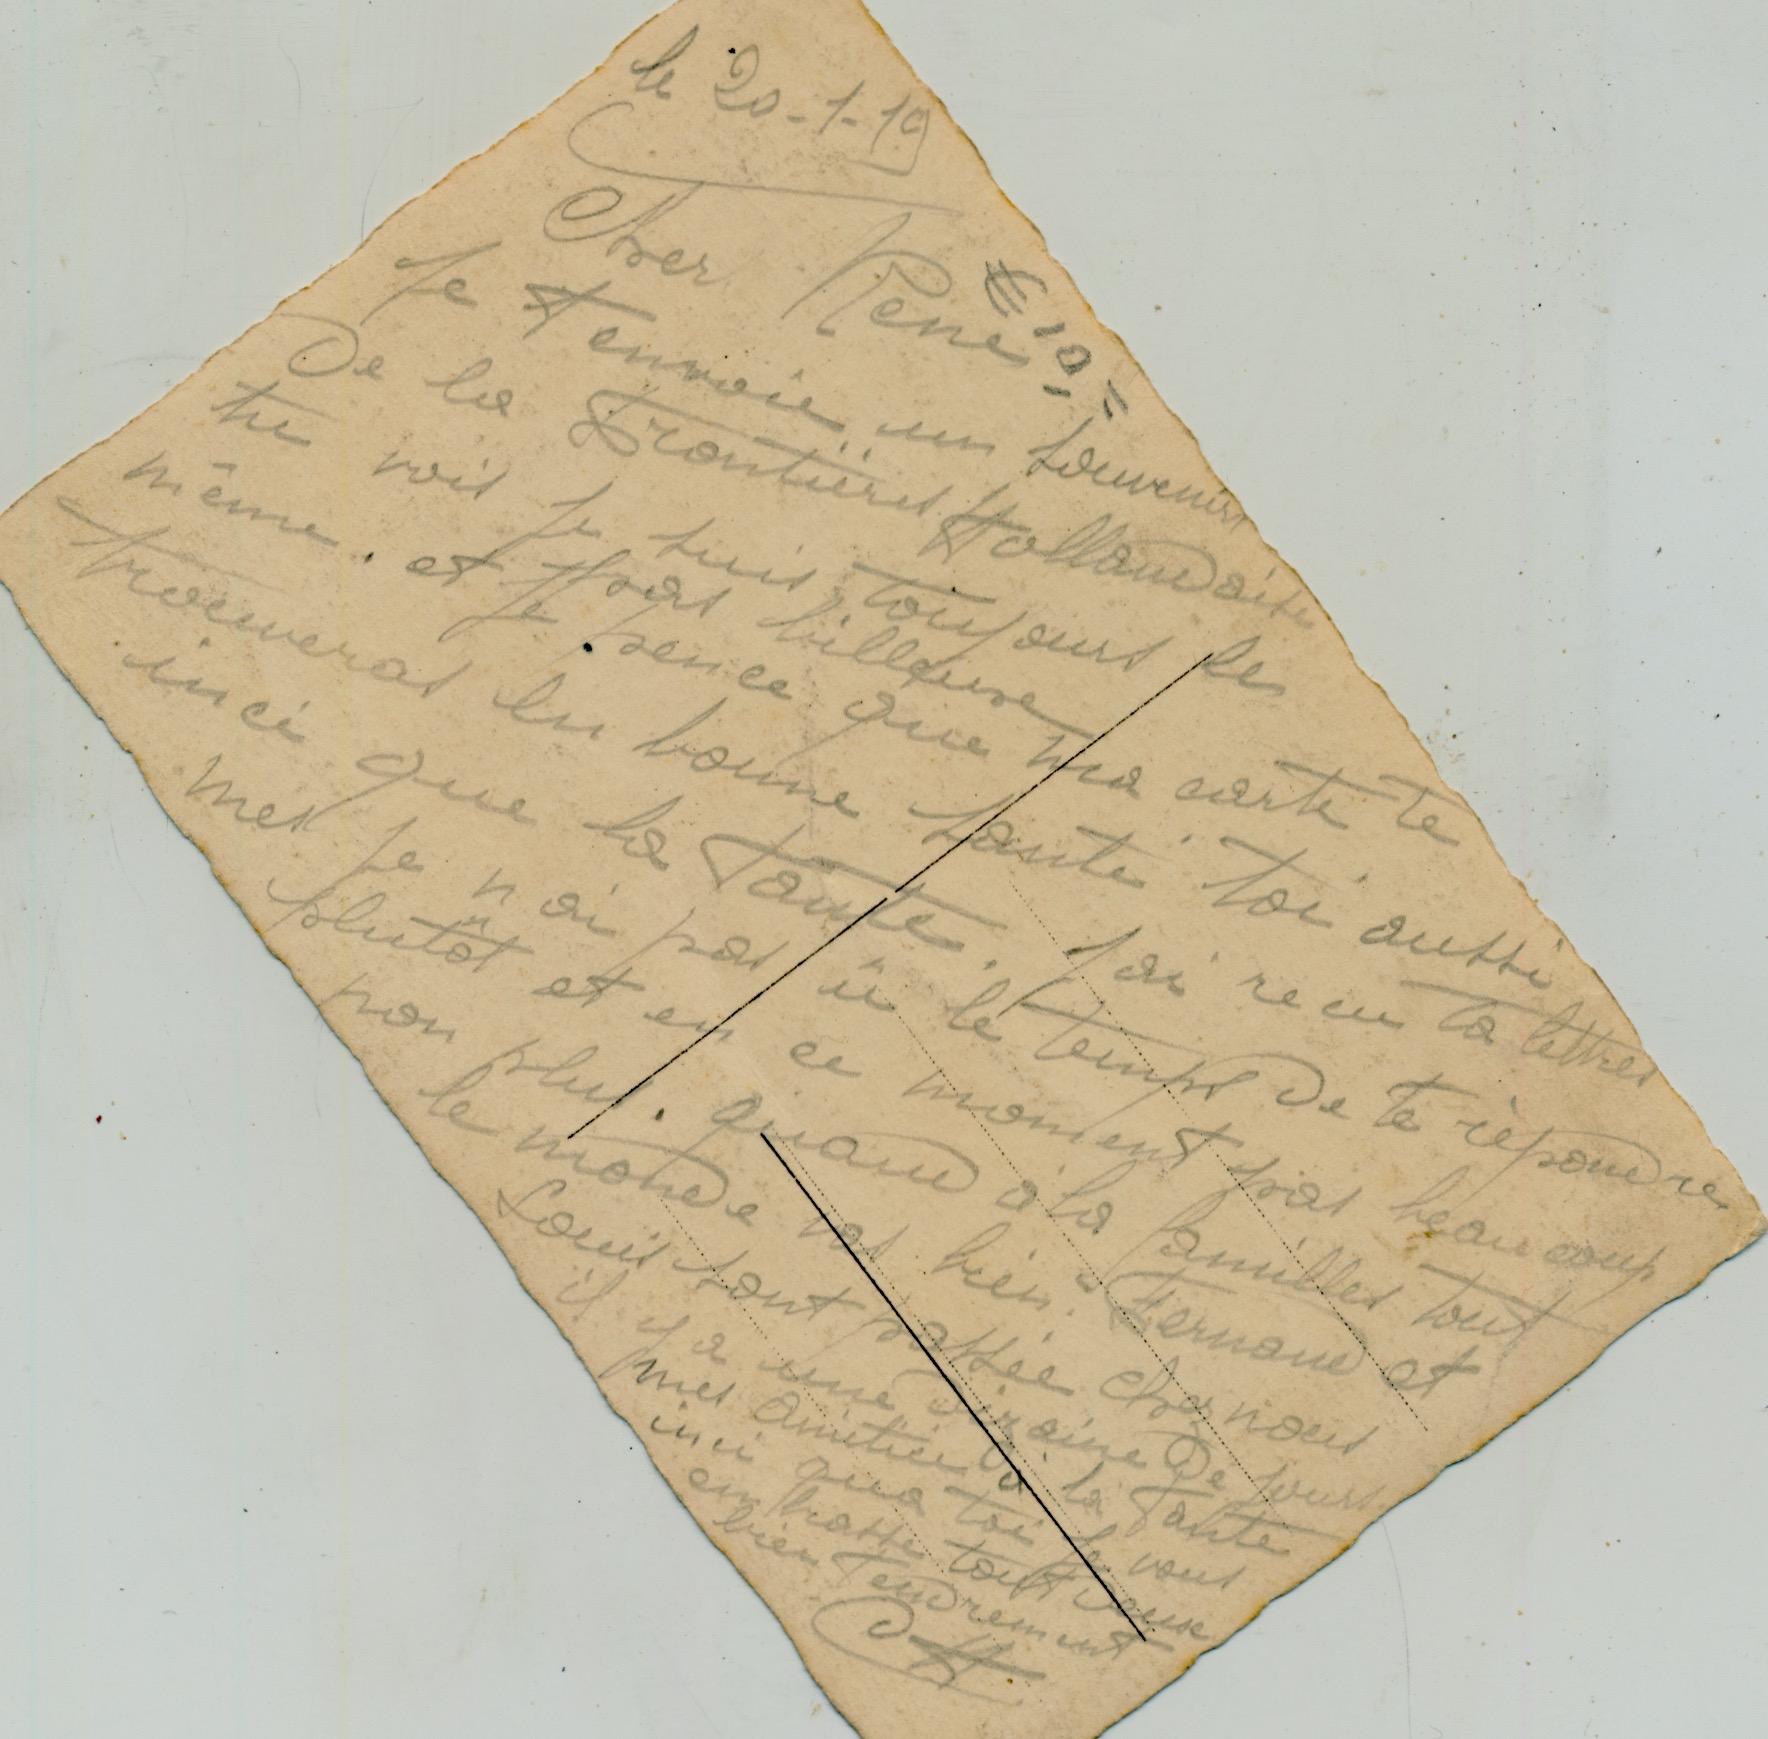 le 20-1-19
Cher René
Je t envoie un souvenirs
De la Frontières Hollandaise
tu vois je suis toujours les
même. et pas billeuse
Je pence que ma carte te
trouveras en bonne santé toi aussi
inci que la Tante. J ai recu ta lettres
mes je n ai pas ü le temps De te rèpondres
plutôt et en ce moment pas beaucoup
non plus. quand à la familles tout
le monde vas bien. Fernand et
Louis sont passée chez nous
il y a une dizaine De jours
mes amitiée à la Tante
inci qua toi Je vous
embrasse tout deux
bien Tendrement